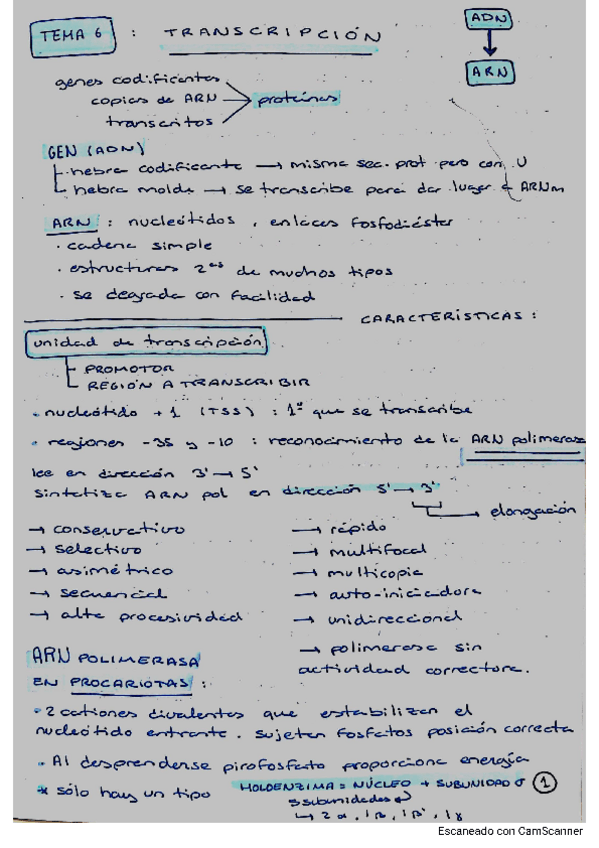 TEMA 6 : TRANSCRIPCIÓN
ADN
ARN
genes codificantes
copias de ARN → proteínas
transcritos
GEN (ADN)
hebra codificante → misma sec. prot pero con U
hebra molde → se transcribe para dar lugar a ARNm
ARN : nucleótidos, enlaces fosfodiéster
· cadena simple
· estructuras 2as de muchos tipos
· se degrada con facilidad
CARACTERÍSTICAS :
unidad de transcripción
PROMOTOR
REGIÓN A TRANSCRIBIR
· nucleótido +1 (TSS) : 1º que se transcribe
· regiones -35 y -10 : reconocimiento de la ARN polimerasa
lee en dirección 3' → 5'
sintetiza ARN pol en dirección 5' → 3'
→ elongación
→ conservativo
→ selectivo
→ asimétrico
→ secuencial
→ alta procesividad
→ rápido
→ multifocal
→ multicopia
→ auto-iniciadora
→ unidireccional
→ polimerasa sin
actividad correctora.
ARN POLIMERASA
EN PROCARIOTAS :
· 2 cationes divalentes que estabilizan el
nucleótido entrante. Sujetan fosfatos posición correcta
· Al desprenderse pirofosfato proporciona energía
* sólo hay un tipo
HOLOENZIMA = NÚCLEO + SUBUNIDAD σ
5 subunidades
→ 2α, 1β, 1β', 1γ
1
Escaneado con CamScanner